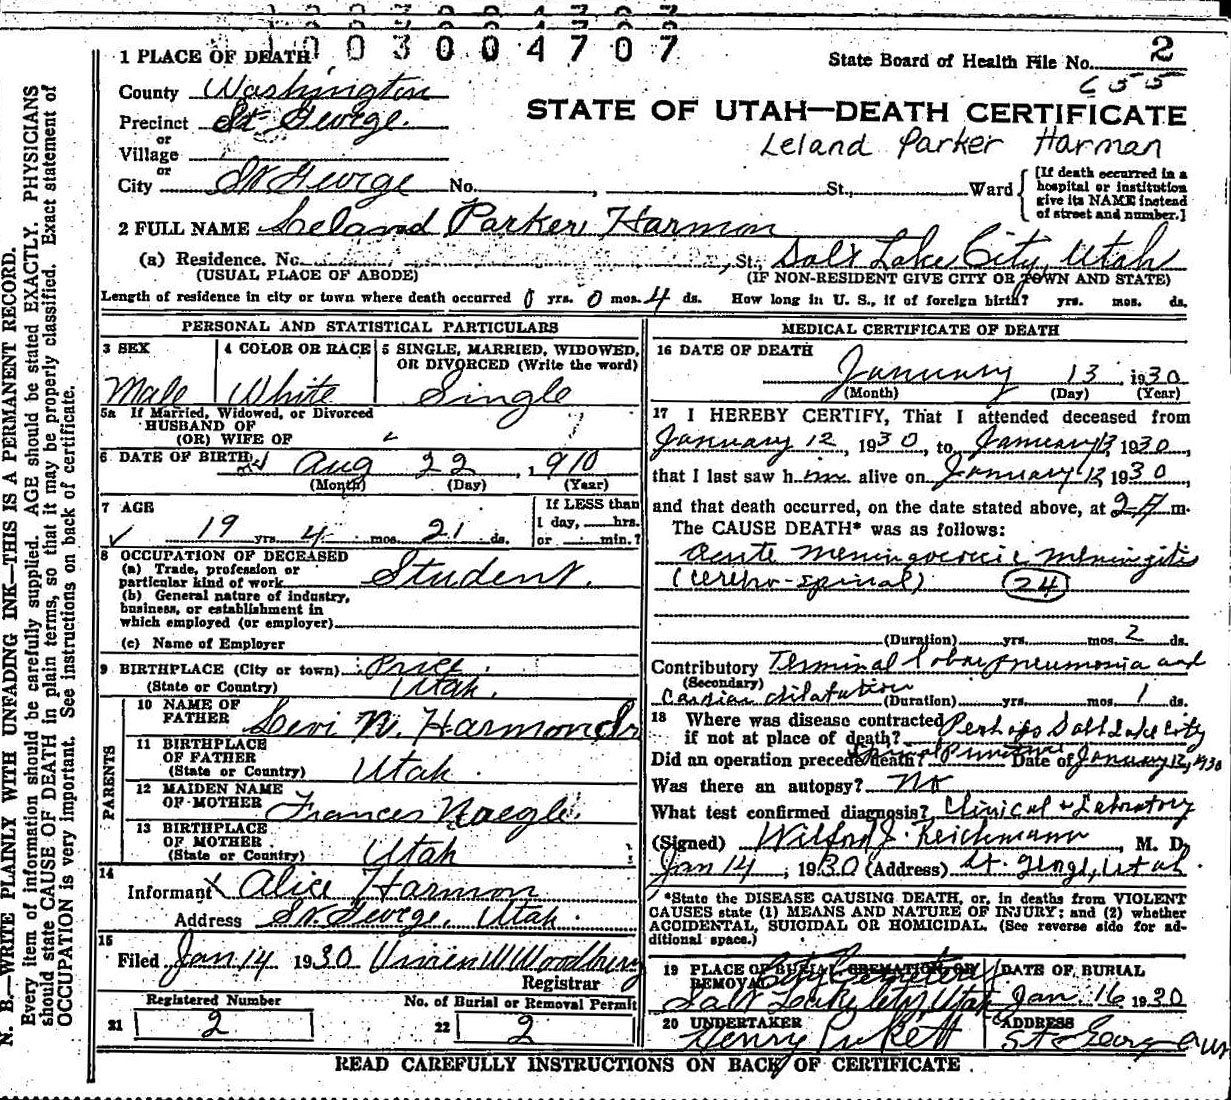 1 0 0 3 0 0 4 7 0 7
1 PLACE OF DEATH
State Board of Health File No. 2
655
County Washington
STATE OF UTAH—DEATH CERTIFICATE
Precinct St George.
or
Village
Leland Parker Harman
or
City St George No. , St., Ward
[If death occurred in a hospital or institution give its NAME instead of street and number.]
2 FULL NAME Leland Parker Harmon
(a) Residence. No. , St., Salt Lake City, Utah
(USUAL PLACE OF ABODE) (IF NON-RESIDENT GIVE CITY OR TOWN AND STATE)
Length of residence in city or town where death occurred 0 yrs. 0 mos. 4 ds. How long in U. S., if of foreign birth? yrs. mos. ds.
PERSONAL AND STATISTICAL PARTICULARS
3 SEX 4 COLOR OR RACE 5 SINGLE, MARRIED, WIDOWED, OR DIVORCED (Write the word)
Male White Single
5a If Married, Widowed, or Divorced
HUSBAND OF
(OR) WIFE OF
6 DATE OF BIRTH Aug 22, 1910
(Month) (Day) (Year)
7 AGE
19 yrs. 4 mos. 21 ds.
If LESS than
1 day, hrs.
or min.?
8 OCCUPATION OF DECEASED
(a) Trade, profession or
particular kind of work Student.
(b) General nature of industry,
business, or establishment in
which employed (or employer)
(c) Name of Employer
9 BIRTHPLACE (City or town) Price
(State or Country) Utah.
PARENTS
10 NAME OF
FATHER Levi N. Harmon
11 BIRTHPLACE
OF FATHER
(State or Country) Utah.
12 MAIDEN NAME
OF MOTHER Frances Naegle.
13 BIRTHPLACE
OF MOTHER
(State or Country) Utah
14
Informant Alice Harmon
Address St. George, Utah.
15
Filed Jan 14 1930 Vivien W Woodbury
Registrar
Registered Number No. of Burial or Removal Permit
21 2 22 2
MEDICAL CERTIFICATE OF DEATH
16 DATE OF DEATH
January 13 1930
(Month) (Day) (Year)
17 I HEREBY CERTIFY, That I attended deceased from
January 12, 1930, to January 13 1930,
that I last saw him alive on January 13 1930,
and that death occurred, on the date stated above, at m.
The CAUSE DEATH* was as follows:
Acute Meningococcic Meningitis
(Cerebro-spinal) 24
(Duration) yrs. mos. 2 ds.
Contributory Terminal lobar pneumonia and
(Secondary)
Cardiac dilatation (Duration) yrs. mos. 1 ds.
18 Where was disease contracted
if not at place of death? Perhaps Salt Lake City
Did an operation precede death? Spinal Puncture Date of January 12, 1930
Was there an autopsy? No
What test confirmed diagnosis? Clinical & Laboratory
(Signed) Wilford J. Reichmann, M. D.
Jan 14, 1930 (Address) St. George, Utah.
*State the DISEASE CAUSING DEATH, or, in deaths from VIOLENT
CAUSES state (1) MEANS AND NATURE OF INJURY; and (2) whether
ACCIDENTAL, SUICIDAL OR HOMICIDAL. (See reverse side for ad-
ditional space.)
19 PLACE OF BURIAL, CREMATION, OR REMOVAL DATE OF BURIAL
City Cemetery
Salt Lake City, Utah Jan. 16 1930
20 UNDERTAKER ADDRESS
Henry Pickett St George
READ CAREFULLY INSTRUCTIONS ON BACK OF CERTIFICATE
N. B.—WRITE PLAINLY WITH UNFADING INK—THIS IS A PERMANENT RECORD.
Every item of information should be carefully supplied. AGE should be stated EXACTLY. PHYSICIANS
should state CAUSE OF DEATH in plain terms, so that it may be properly classified. Exact statement of
OCCUPATION is very important. See instructions on back of certificate.